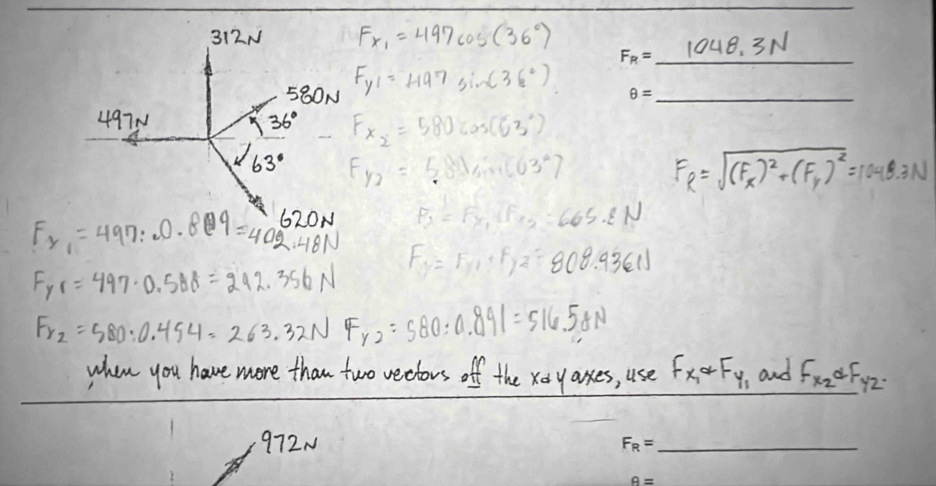 312N
580N
497N
36°
63°
620N
Fx₁ = 497 cos(36°)
Fy1 = 497 sin(36°)
Fx₂ = 580 cos(63°)
Fy₂ = 580 sin(63°)
FR = 1048.3N
θ =
FR = √(Fx)² + (Fy)² = 1048.3N
= 665.8N
Fy = Fy1 + Fy2 = 808.936N
Fx₁ = 497·0.809 = 402.48N
Fy1 = 497·0.588 = 292.356N
Fx2 = 580·0.454 = 263.32N Fy2 = 580·0.891 = 516.58N
when you have more than two vectors off the x & y axes, use Fx₁ & Fy₁ and Fx₂ & Fy2.
972N
FR =
θ =